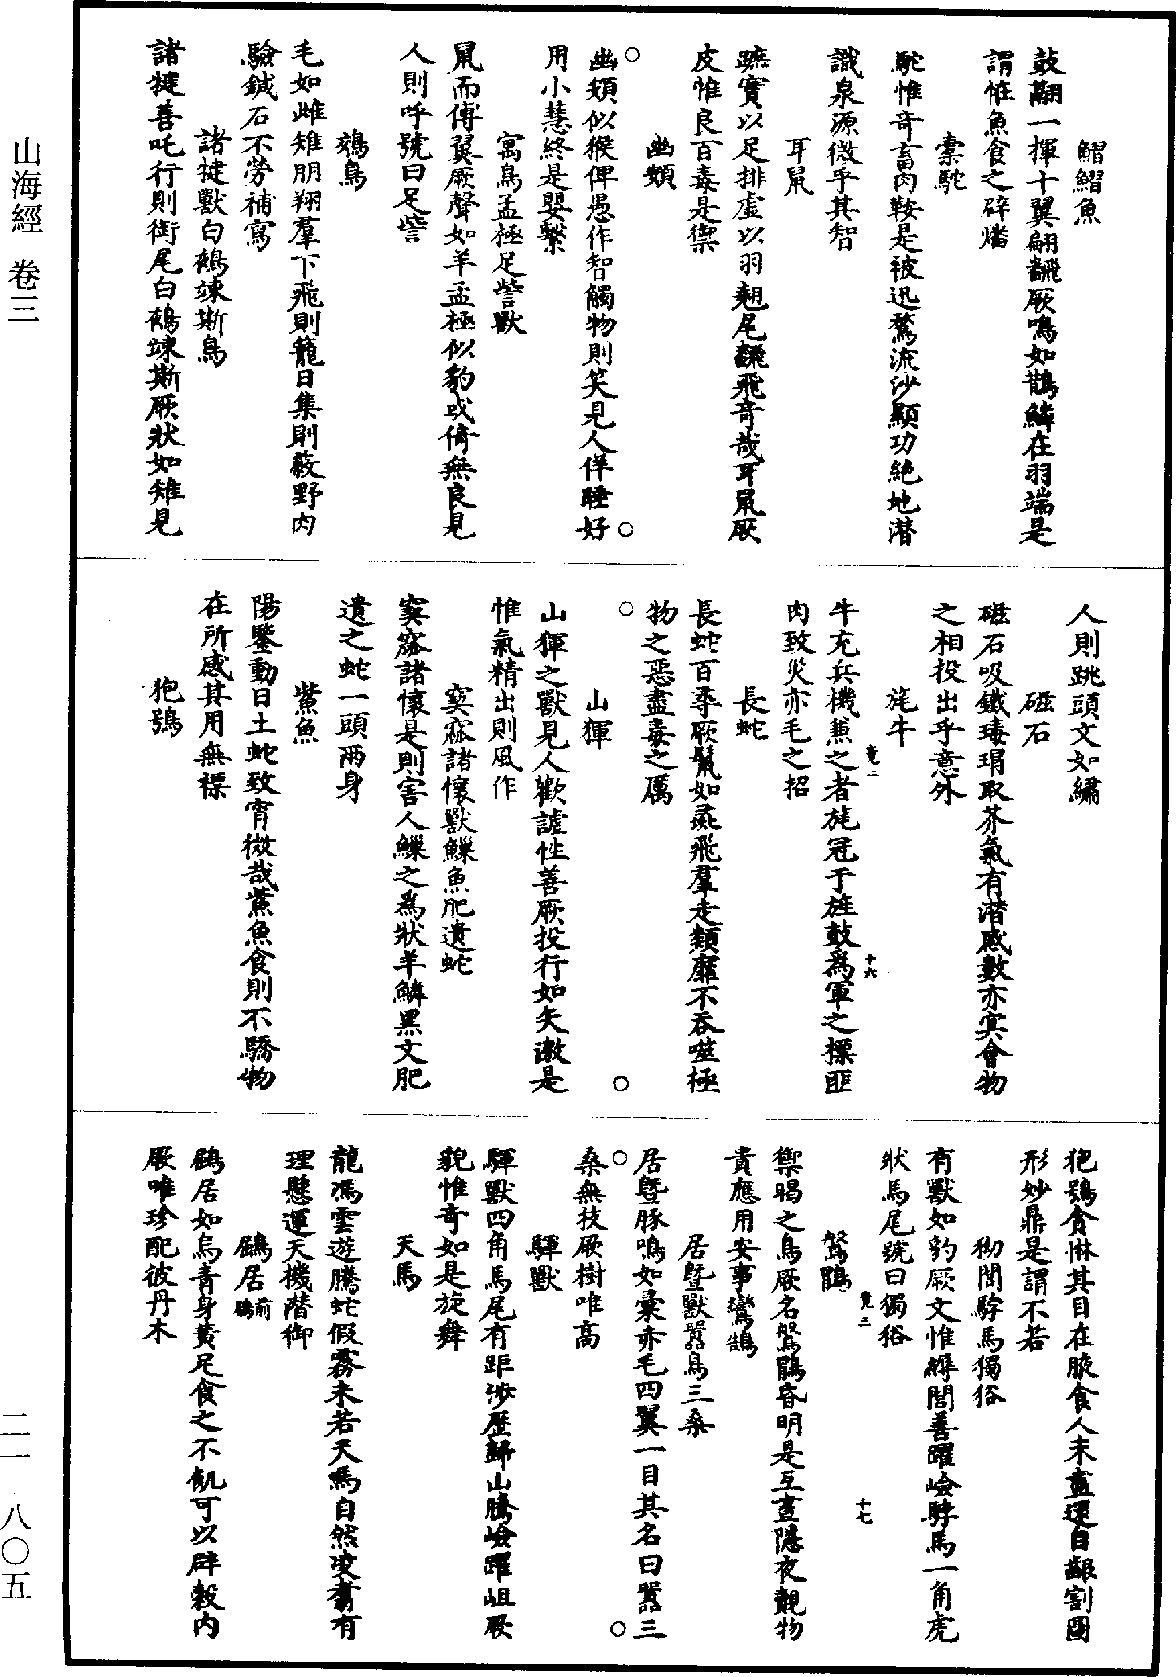 䱻䱻魚
鼓翮一揮十翼翩翻厥鳴如鵲鱗在羽端是
謂怪魚食之辟燔
橐駝
駝惟奇畜肉鞍是被迅騖流沙顯功絕地潛
識泉源微乎其智
耳鼠
蹠實以足排虛以羽翹尾翻飛奇哉耳鼠厥
皮惟良百毒是禦
幽頞
幽頞似猴俾愚作智觸物則笑見人佯睡好
用小慧終是嬰繫
寓鳥孟極足訾獸
鼠而傅翼厥聲如羊孟極似豹或倚無良見
人則呼號曰足訾
鵁鳥
毛如雌雉朋翔羣下飛則籠日集則蔽野肉
驗鍼石不勞補寫
諸揵獸白鵺竦斯鳥
諸揵善吒行則銜尾白鵺竦斯厥狀如雉見
人則跳頭文如繡
磁石
磁石吸鐵瑇瑁取芥氣有潛感數亦冥會物
之相投出乎意外
旄牛
牛充兵機兼之者旄冠于旌鼓為軍之標匪
肉致災亦毛之招
長蛇
長蛇百尋厥鬣如彘飛羣走類靡不吞噬極
物之惡盡毒之厲
山𤟤
山𤟤之獸見人歡謔性善厥投行如矢激是
惟氣精出則風作
窫窳諸懷獸鰼魚肥遺蛇
窫窳諸懷是則害人鰼之為狀羊鱗黑文肥
遺之蛇一頭兩身
鮆魚
陽鑒動日土蛇致宵微哉鮆魚食則不驕物
在所感其用無標
狍鴞
狍鴞貪惏其目在腋食人未盡還自齦割圖
形妙鼎是謂不若
狕閭䮝馬獨𤞞
有獸如豹厥文惟縟閭善躍嶮䮝馬一角虎
狀馬尾號曰獨𤞞
鷔鶥
禦暍之鳥厥名鷔鶥昏明是互晝隱夜覿物
貴應用安事鸞鵠
居暨獸囂鳥三桑
居暨豚鳴如彙赤毛四翼一目其名曰囂三
桑無枝厥樹唯高
驒獸
驒獸四角馬尾有距涉歷歸山騰嶮躍岨厥
貌惟奇如是旋舞
天馬
龍馮雲遊騰蛇假霧未若天馬自然凌翥有
理懸運天機潛御
鶌居
鶌居如烏青身黃足食之不飢可以辟穀內
厥唯珍配彼丹木
十六
十七
山海經 卷三
二一 八〇五